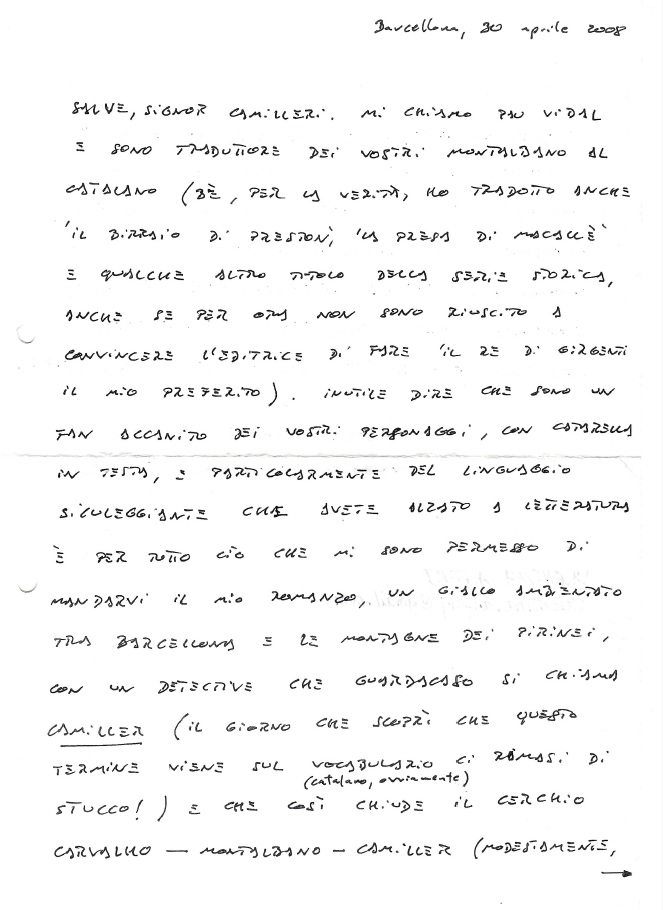 Barcellona, 30 aprile 2008
SALVE, SIGNOR CAMILLERI. MI CHIAMO PAU VIDAL
E SONO TRADUTTORE DEI VOSTRI MONTALBANO AL
CATALANO (BÈ, PER LA VERITÀ, HO TRADOTTO ANCHE
'IL BIRRAIO DI PRESTON', 'LA PRESA DI MACALLÈ'
E QUALCHE ALTRO TITOLO DELLA SERIE STORICA,
ANCHE SE PER ORA NON SONO RIUSCITO A
CONVINCERE L'EDITRICE DI FARE 'IL RE DI GIRGENTI
IL MIO PREFERITO). INUTILE DIRE CHE SONO UN
FAN ACCANITO DEI VOSTRI PERSONAGGI, CON CATARELLA
IN TESTA, E PARTICOLARMENTE DEL LINGUAGGIO
SICULEGGIANTE CHE AVETE ALZATO A LETTERATURA
È PER TUTTO CIÒ CHE MI SONO PERMESSO DI
MANDARVI IL MIO ROMANZO, UN GIALLO AMBIENTATO
TRA BARCELLONA E LE MONTAGNE DEI PIRINEI,
CON UN DETECTIVE CHE GUARDACASO SI CHIAMA
CAMILLER (IL GIORNO CHE SCOPRÌ CHE QUESTO
TERMINE VIENE SUL VOCABULARIO CI RIMASI DI
(catalano, ovviamente)
STUCCO!) E CHE COSÌ CHIUDE IL CERCHIO
CARVALHO — MONTALBANO — CAMILLER (MODESTAMENTE,
→